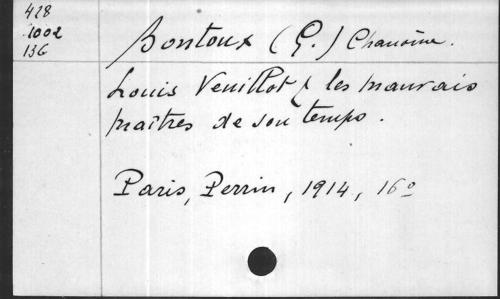 428
1002
136
Bontoux (G.) Chanoine.
Louis Veuillot & les mauvais
maîtres de son temps.
Paris, Perrin, 1914, 16º